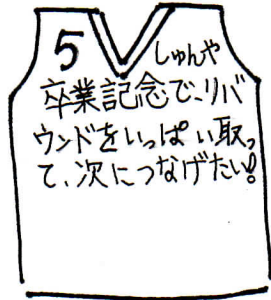 5 しゅんや
卒業記念で、リバ
ウンドをいっぱい取っ
て、次につなげたい!